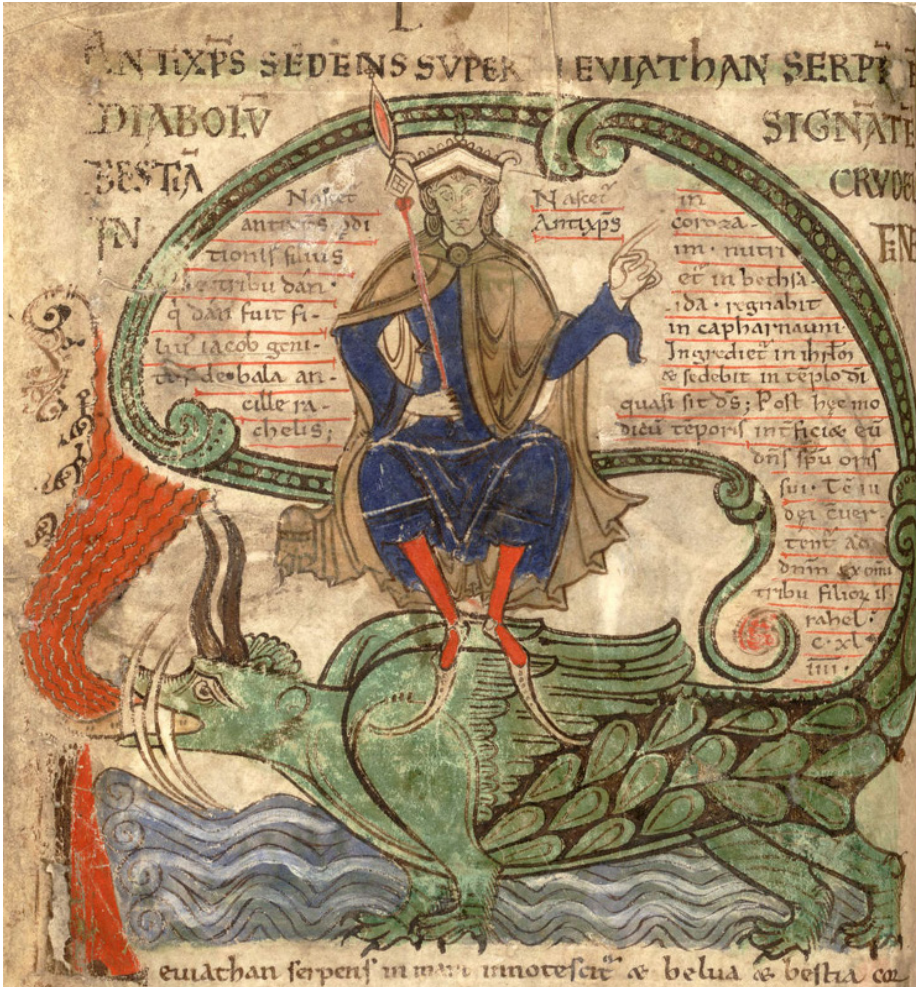 ANTIXP̄S SEDENS SVPER LEVIATHAN SERPĒ
DIABOLV̄ SIGNĀTĒ
BESTIĀ CRVDE
IN
Nascet᷑
antixp̄s ꝑdi
tionis filius
de tribu dan·
q̇ dan fuit fi-
liꝰ iacob geni-
tꝰ de bala an-
cille ra-
chelis;
Nascet᷑
Antixp̄s
in
coroza-
im· nutri
et᷑ in bethsa-
ida· regnabit
in capharnaum·
Ingrediet᷑ in ihrl̄m
& sedebit in tēplo dī
quasi sit dꝰ; Post hęc mo
dicū tēporis intꝰficiet eū
dn̄s sp̄u oris
sui· Tē iu
dei cūer-
tent᷑ ad
dnm̄ ex om̄i
tribu filioꝝ is
rahel·
c·xl
iiii·
euiathan serpens in mari innotescit᷑ & belua & bestia